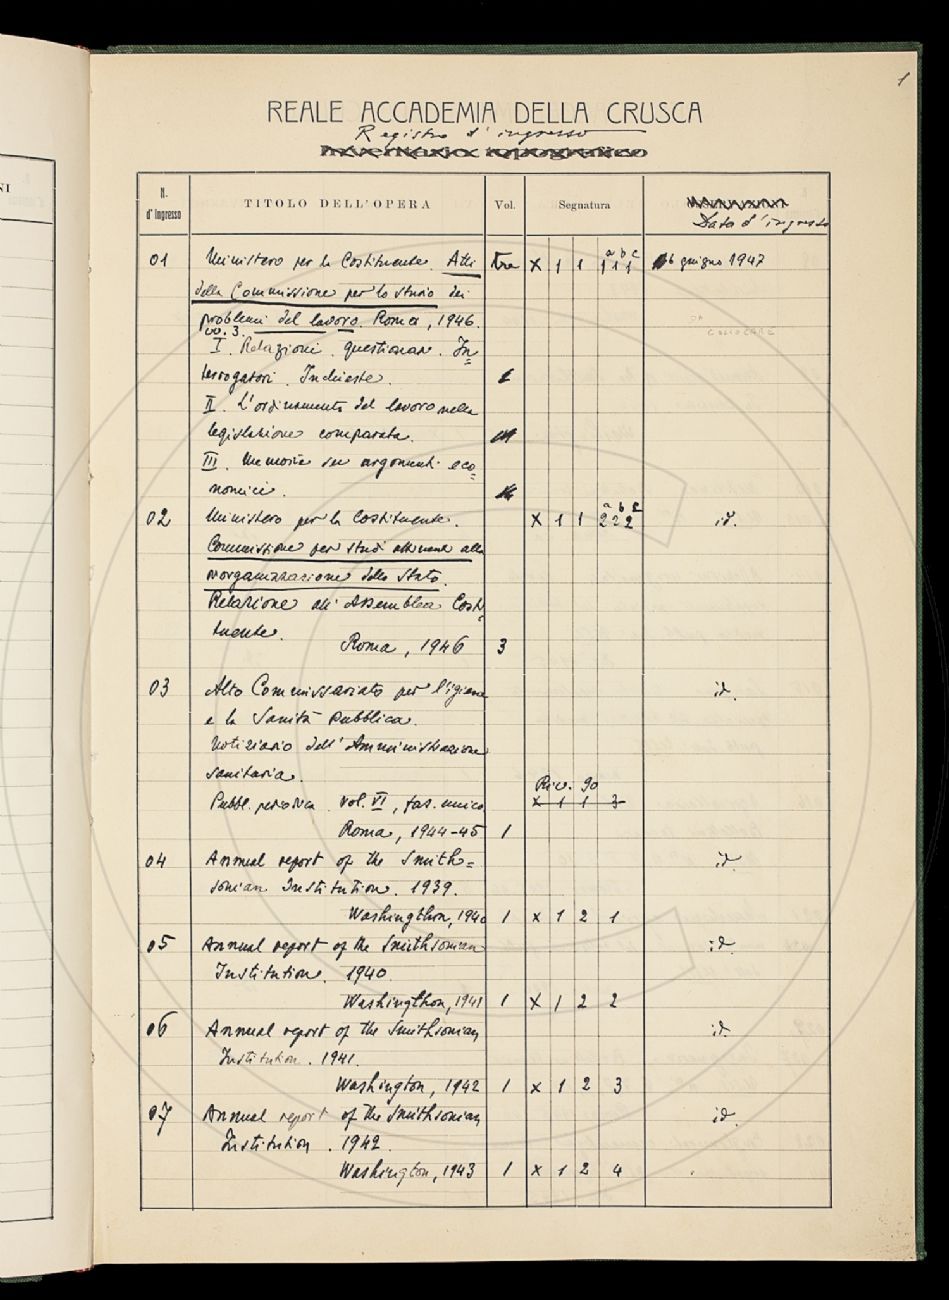 1
REALE ACCADEMIA DELLA CRUSCA
Registro d'ingresso
Inventario topografico
NI
N. d'Ingresso TITOLO DELL'OPERA Vol. Segnatura
Data d'ingresso
a b c
01 Ministero per la Costituente. Atti tre X 1 1 1 1 1 16 giugno 1947
della Commissione per lo studio dei
problemi del lavoro. Roma, 1946. DA
vv. 3. COLLOCARE
I. Relazioni. questionari. In=
terrogatori. Inchieste.
II. L'ordinamento del lavoro nella
legislazione comparata.
III. Memorie su argomenti eco=
nomici.
a b c
02 Ministero per la Costituente. X 1 1 2 2 2 id.
Commissione per studi attinenti alla
riorganizzazione dello Stato.
Relazione all'Assemblea Costi=
tuente.
Roma, 1946 3
03 Alto Commissariato per l'igiene id.
e la Sanità Pubblica.
Notiziario dell'Amministrazione
sanitaria. Riv. 90
Pubbl. periodica. vol. VI, fas. unico X 1 1 3
Roma, 1944-45 1
04 Annual report of the Smith= id.
sonian Institution. 1939.
Washingthon, 1940 1 X 1 2 1
05 Annual report of the Smithsonian id.
Institution. 1940
Washingthon, 1941 1 X 1 2 2
06 Annual report of the Smithsonian id.
Institution. 1941.
Washington, 1942 1 X 1 2 3
07 Annual report of the Smithsonian id.
Institution. 1942.
Washington, 1943 1 X 1 2 4